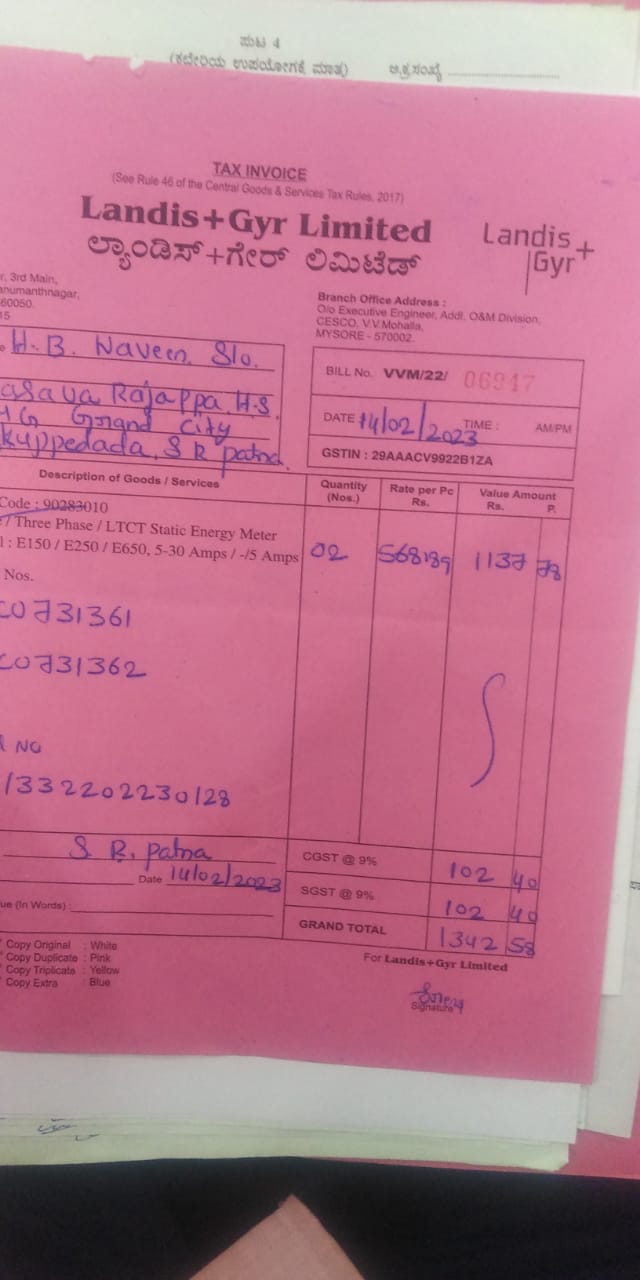 ಪುಟ 4
(ಕಛೇರಿಯ ಉಪಯೋಗಕ್ಕೆ ಮಾತ್ರ)
TAX INVOICE
(See Rule 46 of the Central Goods & Services Tax Rules, 2017)
Landis+Gyr Limited
ಲ್ಯಾಂಡಿಸ್+ಗೇರ್ ಲಿಮಿಟೆಡ್
Landis+
Gyr
r, 3rd Main,
anumanthnagar,
60050.
15
Branch Office Address :
O/o Executive Engineer, Addl. O&M Division,
CESCO, V.V.Mohalla,
MYSORE - 570002.
H.B. Naveen S/o.
asava Rajappa H.S.
4G Grand City
kuppedada, S R patna.
BILL No. VVM/22/ 06947
DATE 14/02/2023 TIME : AM/PM
GSTIN : 29AAACV9922B1ZA
Description of Goods / Services Quantity (Nos.) Rate per Pc Rs. Value Amount Rs. P.
Code : 90283010
/ Three Phase / LTCT Static Energy Meter
l : E150 / E250 / E650, 5-30 Amps / -/5 Amps 02 568.89 1137 78
Nos.
C0731361
C0731362
NO
1332202230128
S R. Patna
Date 14/02/2023
ue (In Words) :
CGST @ 9% 102 40
SGST @ 9% 102 40
GRAND TOTAL 1342 58
For Landis+Gyr Limited
Signature
Copy Original : White
Copy Duplicate : Pink
Copy Triplicate : Yellow
Copy Extra : Blue